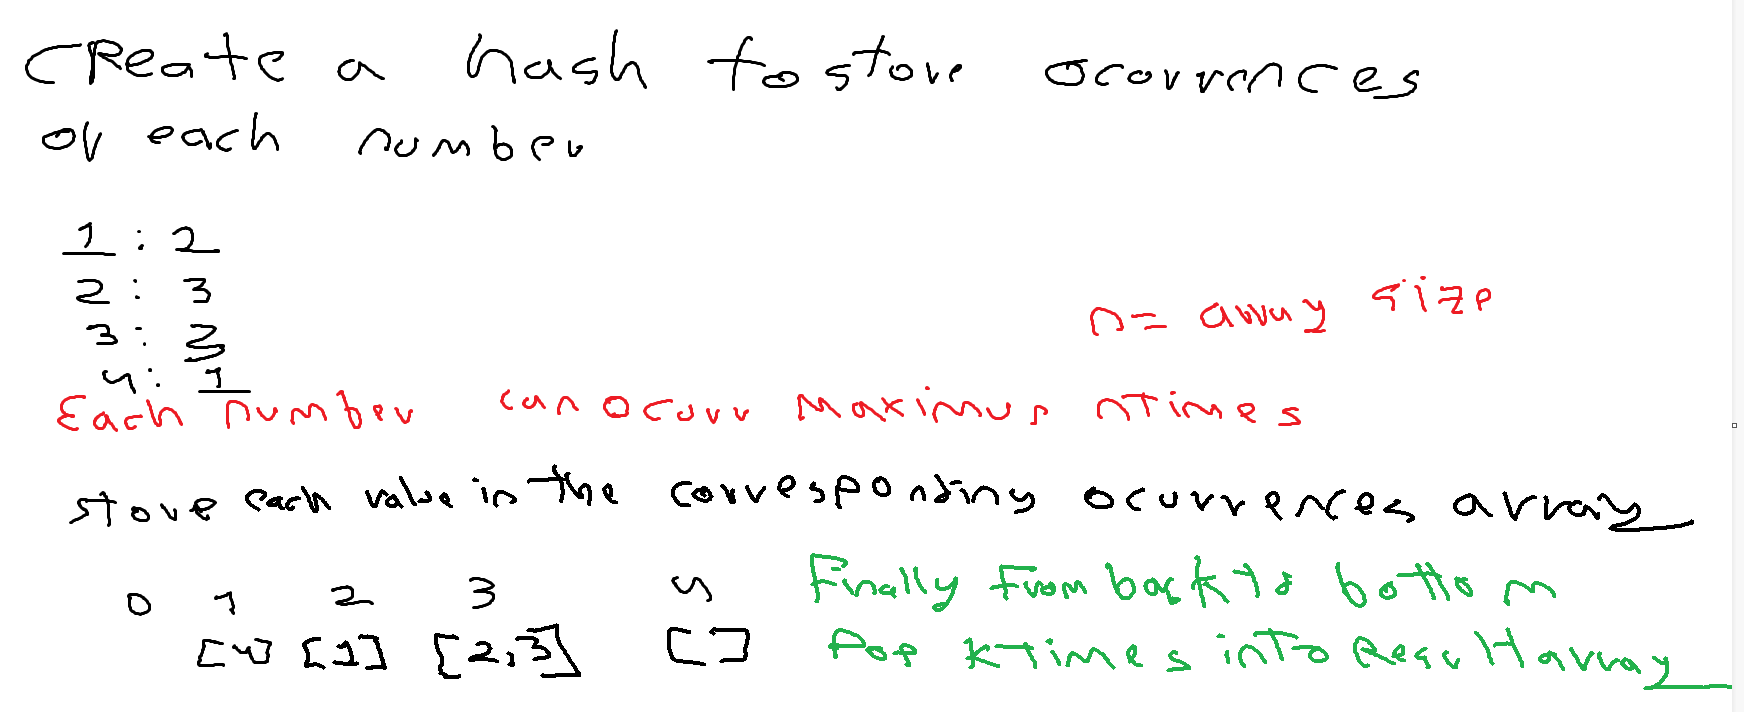 CReate a hash to store ocorrences
of each number
1 : 2
2 : 3
3 : 3
4 : 1
n = array size
Each number can ocurr maximus n Times
store each value in the corresponding ocurrences array
0 1 2 3 4
[4] [1] [2,3] []
Finally From back to bottom
Pop k Times into Result array